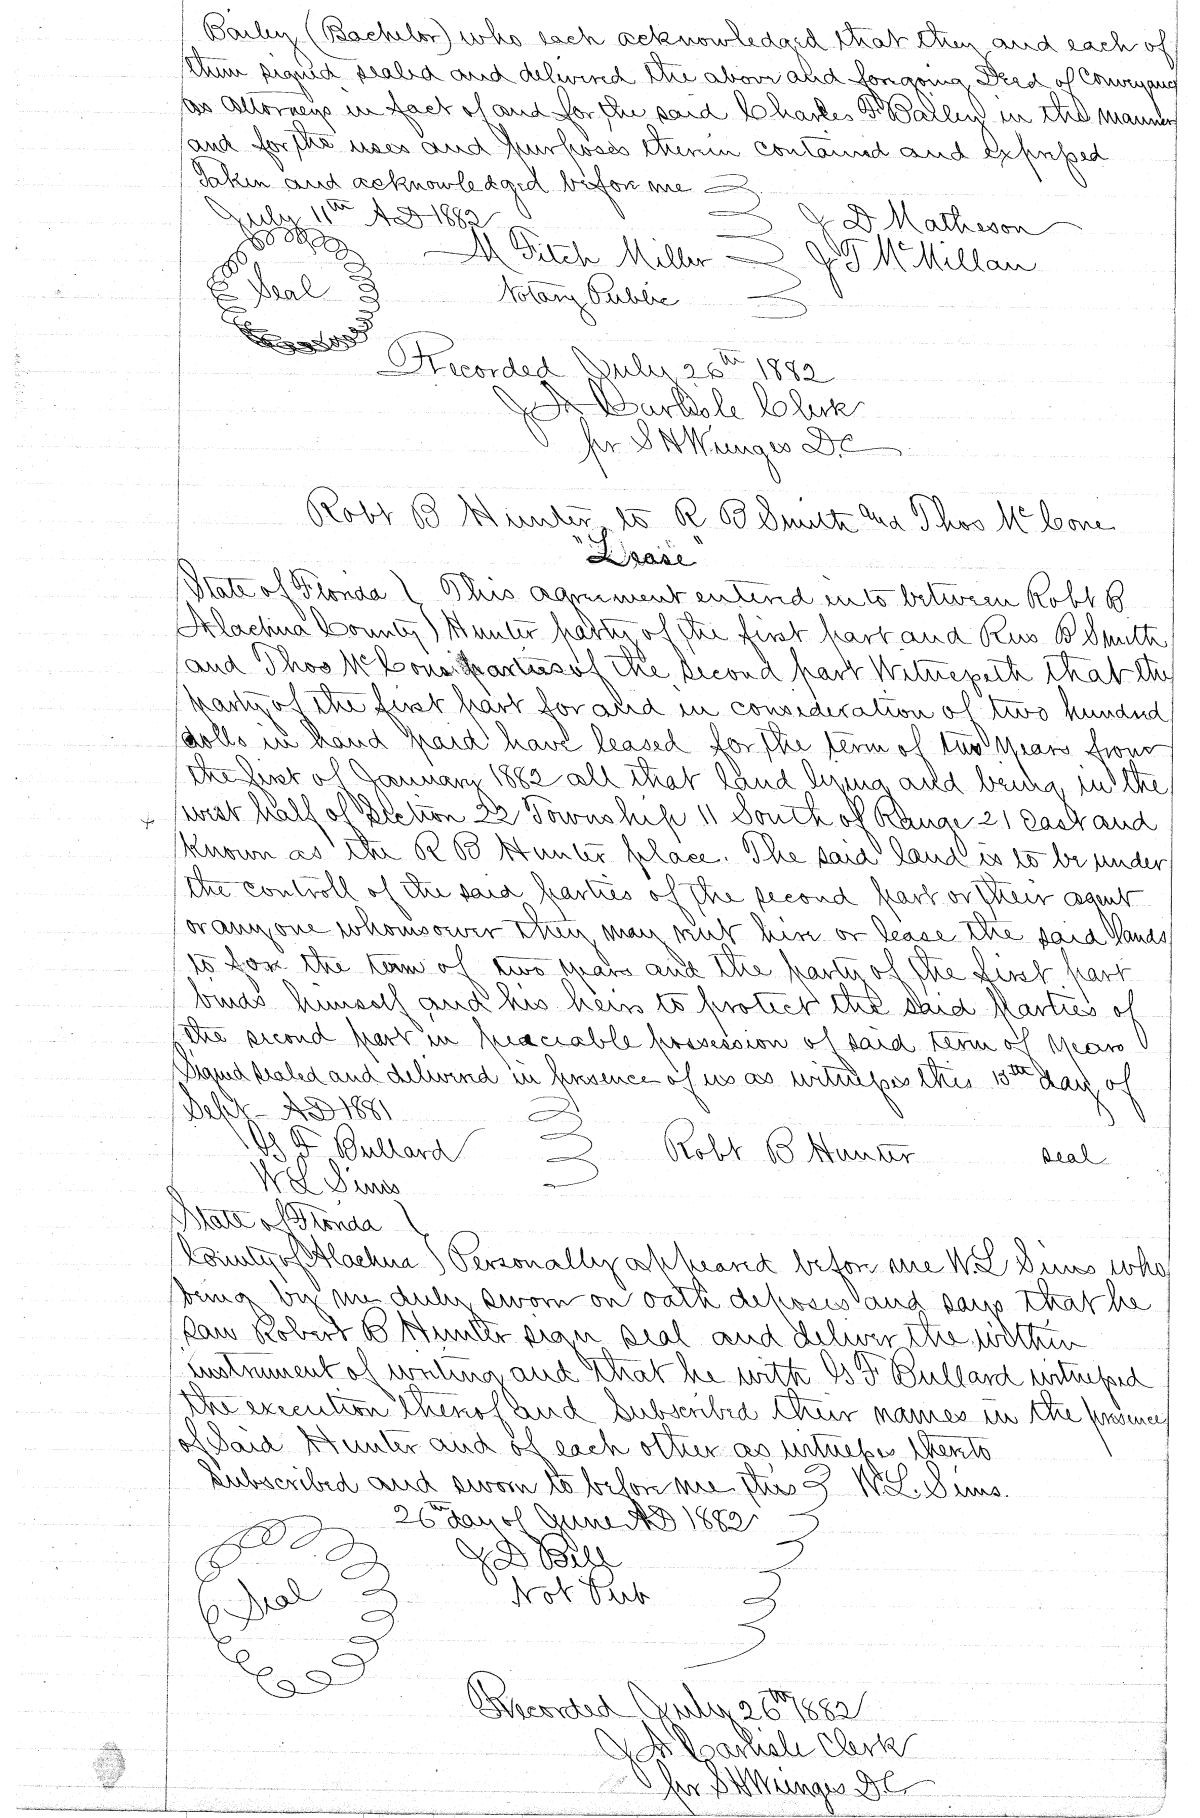 Bailey (Bachelor) who each acknowledged that they and each of
them signed sealed and delivered the above and foregoing Deed of Conveyance
as Attorneys in fact of and for the said Charles F Bailey in the manner
and for the uses and purposes therein contained and expressed
Taken and acknowledged before me
July 11th AD 1882
J D Matheson
M Fitch Miller
J T McMillan
Seal
Notary Public
Recorded July 26th 1882
J A Carlisle Clerk
pr S H Wienges D.C
Robt B Hunter to R B Smith and Thos McCone
"Lease"
State of Florida } This agreement entered into between Robt B
Alachua County ) Hunter party of the first part and R B Smith
and Thos McCone parties of the second part Witnesseth that the
party of the first part for and in consideration of two hundred
dolls in hand paid have leased for the term of two years from
the first of January 1882 all that land lying and being in the
west half of Section 22 Township 11 South of Range 21 East and
known as the R B Hunter place. The said land is to be under
the controll of the said parties of the second part or their agent
or any one whomsoever they may rent hire or lease the said lands
to for the term of two years and the party of the first part
binds himself and his heirs to protect the said parties of
the second part in peaceiable possession of said term of years
Signed sealed and delivered in presence of us as witness this 15th day of
Sept - AD 1881
G F Bullard
Robt B Hunter seal
W L Sims
State of Florida }
County of Alachua ) Personally appeared before me W.L Sims who
being by me duly sworn on oath deposes and says that he
saw Robert B Hunter sign seal and deliver the within
instrument of writing and that he with G F Bullard witnessed
the execution thereof and subscribed their names in the presence
of said Hunter and of each other as witness thereto
Subscribed and sworn to before me this W.L. Sims.
26th day of June AD 1882
J D Bell
Seal
Not Pub
Recorded July 26th 1882
J A Carlisle Clerk
pr S H Wienges D.C